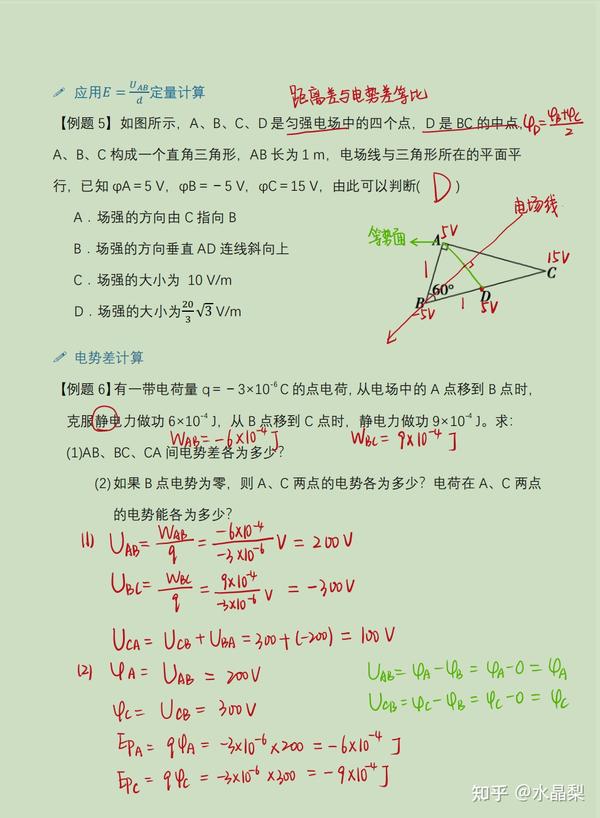 应用E=U_AB/d定量计算
距离差与电势差等比
【例题 5】如图所示，A、B、C、D 是匀强电场中的四个点，D 是 BC 的中点，φD=(φB+φC)/2
A、B、C 构成一个直角三角形，AB 长为 1 m，电场线与三角形所在的平面平
行，已知 φA=5 V，φB=－5 V，φC=15 V，由此可以判断( D )
A．场强的方向由 C 指向 B
B．场强的方向垂直 AD 连线斜向上
C．场强的大小为 10 V/m
D．场强的大小为20/3 √3 V/m
电场线
等势面
A 5V
15V
C
1
60°
B
-5V
1
D
5V
电势差计算
【例题 6】有一带电荷量 q=－3×10⁻⁶ C 的点电荷, 从电场中的 A 点移到 B 点时，
克服静电力做功 6×10⁻⁴ J，从 B 点移到 C 点时，静电力做功 9×10⁻⁴ J。求：
W_AB=-6×10⁻⁴J W_BC=9×10⁻⁴J
(1)AB、BC、CA 间电势差各为多少？
(2) 如果 B 点电势为零，则 A、C 两点的电势各为多少？电荷在 A、C 两点
的电势能各为多少？
(1) U_AB=W_AB/q=-6×10⁻⁴/-3×10⁻⁶ V=200V
U_BC=W_BC/q=9×10⁻⁴/-3×10⁻⁶ V=-300V
U_CA=U_CB+U_BA=300+(-200)=100V
(2) φA=U_AB=200V U_AB=φA-φB=φA-0=φA
φC=U_CB=300V U_CB=φC-φB=φC-0=φC
EpA=qφA=-3×10⁻⁶×200=-6×10⁻⁴J
EpC=qφC=-3×10⁻⁶×300=-9×10⁻⁴J
知乎 @水晶梨